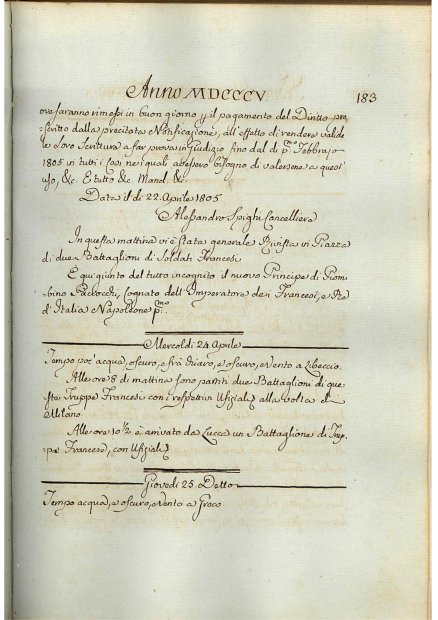 Anno MDCCCV.
183
ove saranno rimessi in buon giorno p il pagamento del Diritto pre-
scritto dalla precitata Notificazione, all'effetto di rendere valide
le loro Scritture a far prova in Giudizio fino dal dì p.mo Febbrajo
1805 in tutti i casi ne i quali avessero bisogno di valersene a quest'
uso, &c. E tutto &c. Mand. &c.
Data il dì 22. Aprile 1805
Alessandro Spighi Cancelliere
In questa mattina vi è stata generale Rivista in Piazza
di due Battaglioni di Soldati Francesi
È qui giunto del tutto incognito il nuovo Principe di Piom-
bino Baciocchi, Cognato dell'Imperatore de i Francesi, e Re
d'Italia Napoleone p.mo
Mercoldì 24 Aprile
Tempo poc'acqua, oscuro, e frà chiaro, e oscuro, e vento a Libeccio.
Alle ore 8 di mattino sono partiti due Battaglioni di que-
ste Truppe Francesi con i respettivi Ufiziali alla volta di
Milano
Alle ore 10½ è arrivato da Lucca un Battaglione di Trup-
pa Francese, con Ufiziali
Giovedì 25 Detto
Tempo acqua, e oscuro, e vento a Greco